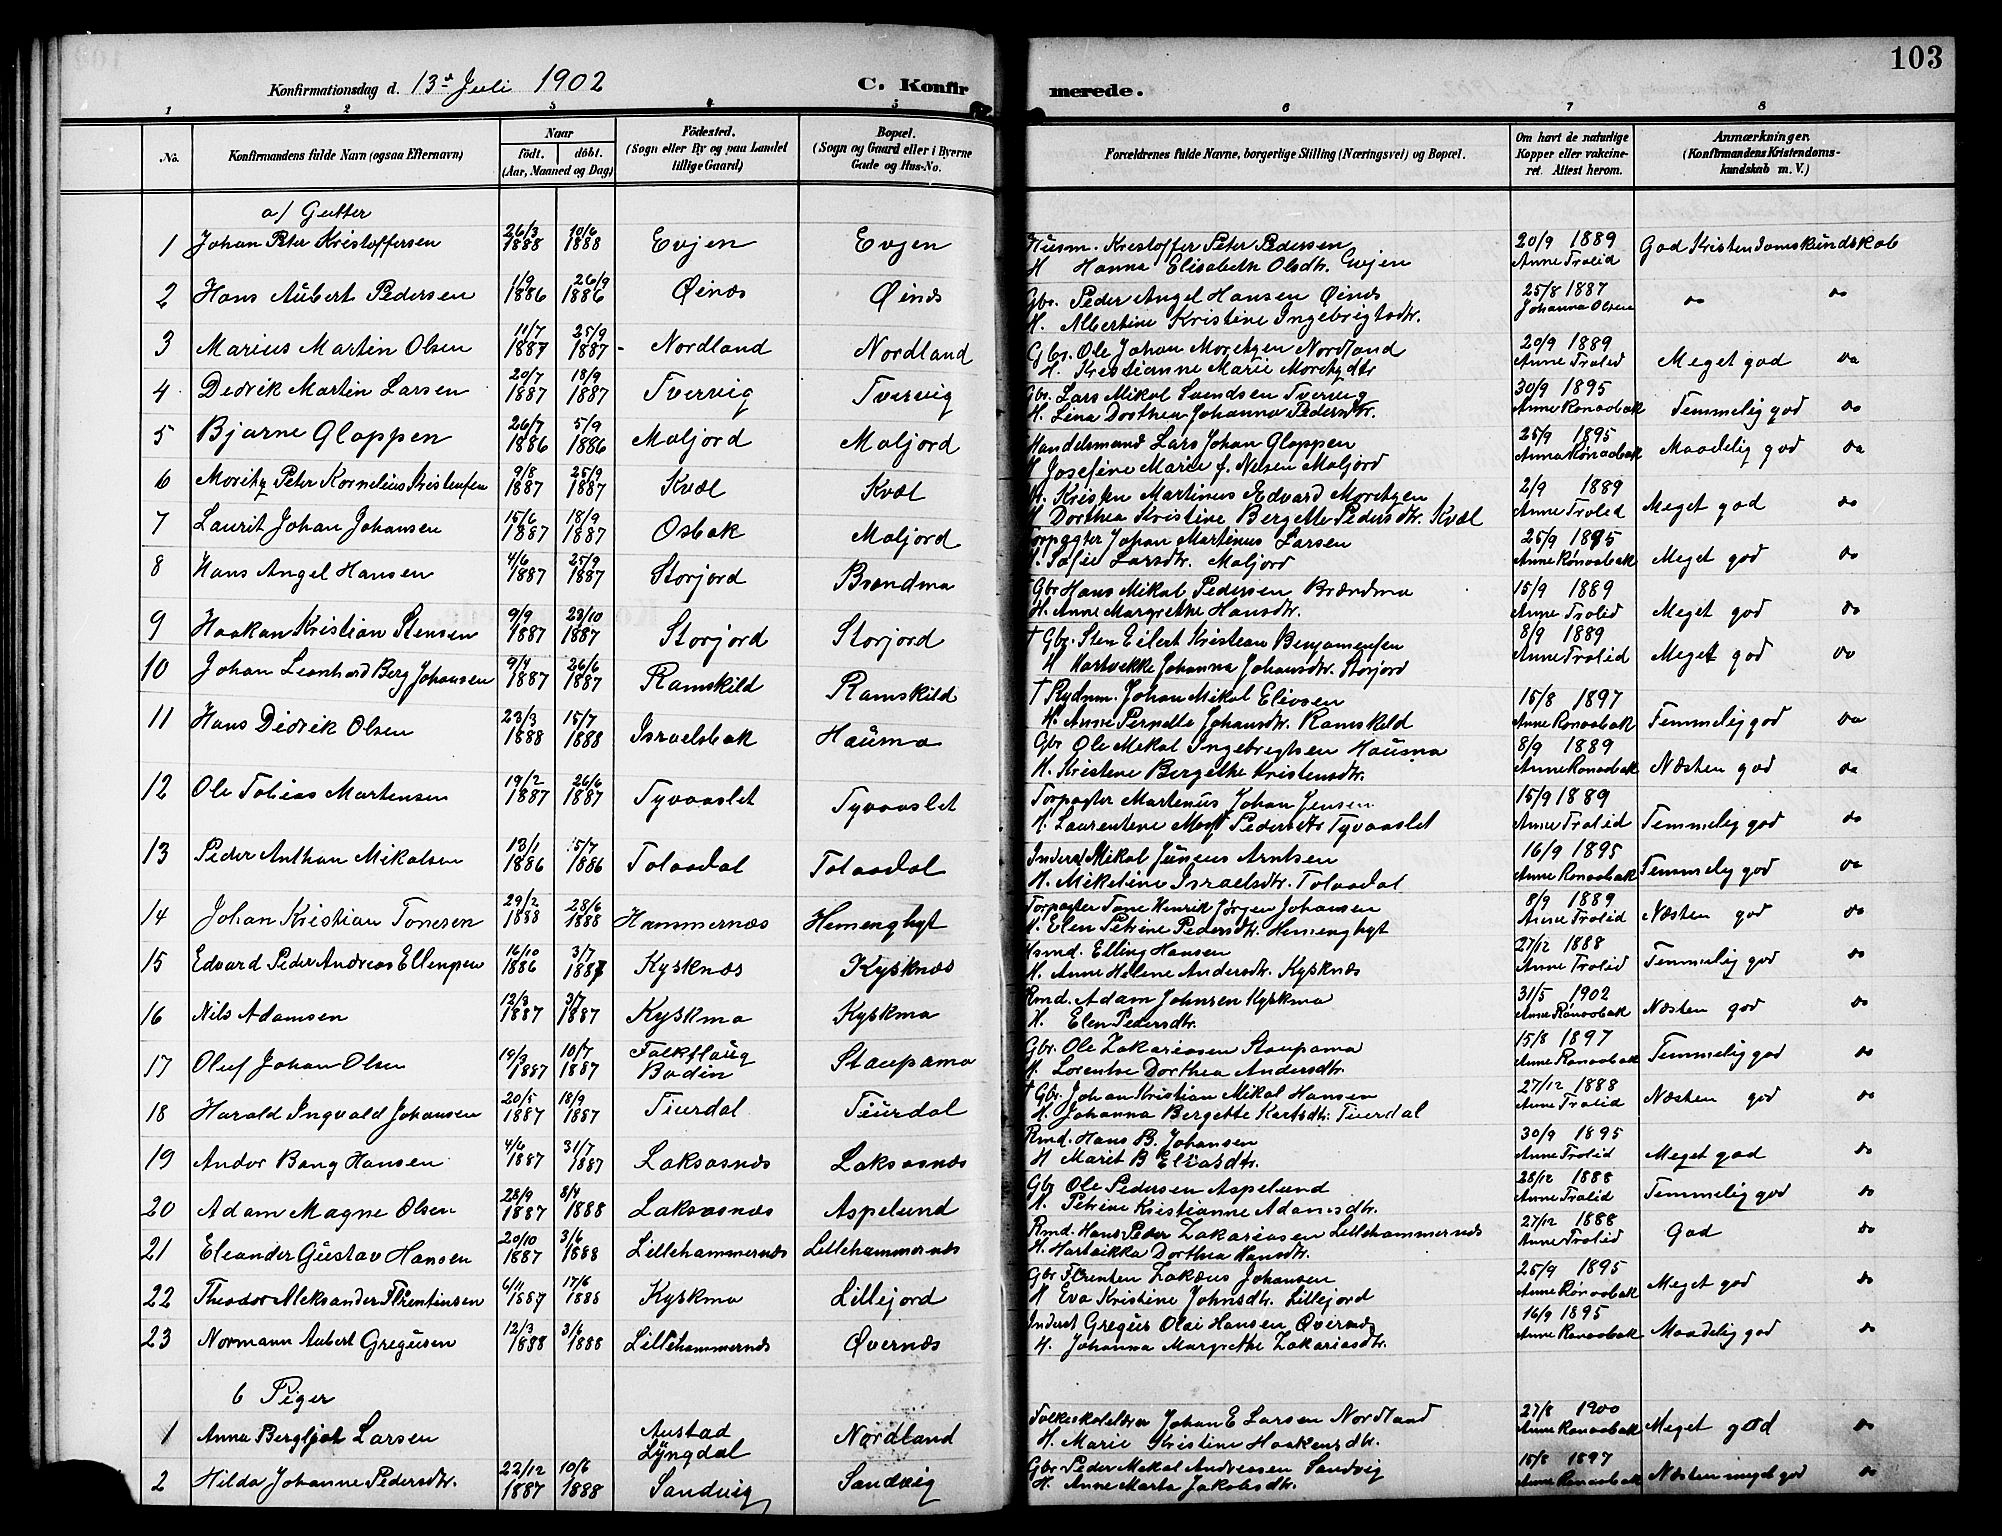 103
Konfirmationsdag d. 13de Juli 1902
C. Konfirmerede.
1 2 3 4 5 6 7 8
No.
Konfirmandens fulde Navn (ogsaa Efternavn)
Naar
födt. döbt.
(Aar, Maaned og Dag)
Födested.
(Sogn eller By og paa Landet
tillige Gaard)
Bopæl.
(Sogn og Gaard eller i Byerne
Gade og Hus-No.
Forældrenes fulde Navne, borgerlige Stilling (Næringsvei) og Bopæl.
Om havt de naturlige
Kopper eller vakcine-
ret. Attest herom.
Anmærkninger.
(Konfirmandens Kristendoms-
kundskab m. V.)
a/ Gutter
1 Johan Peter Kristoffersen 26/3 1888 10/6 1888 Evjen Evjen Husm. Kristoffer Peter Pedersen 20/9 1889 God Kristendomskundskab
H Hanna Elisabeth Olsdtr. Evjen Anne Trolid
2 Hans Aubert Pedersen 1/9 1886 26/9 1886 Øinæs Øinæs Gbr. Peder Angel Hansen Øinæs 25/8 1887 do do
H. Albertine Kristine Ingebrigtsdtr. Johanna Olsen
3 Marius Martin Olsen 11/7 1887 25/9 1887 Nordland Nordland Gbr. Ole Johan Moritzen Nordland 20/9 1889 Meget god do
H. Kristianne Marie Moritzdtr Anne Trolid
4 Dedrik Martin Larsen 20/7 1887 18/9 1887 Tvervig Tvervig Gbr. Lars Mikal Svendsen Tvervig 30/9 1895 Temmelig god do
H. Lina Dorthea Johanna Pedersdtr. Anne Rønaabak
5 Bjarne Gloppen 26/7 1886 5/9 1886 Moljord Moljord Handelsmand Lars Johan Gloppen 25/9 1895 Maadelig god do
H Josefine Marie f. Nilsen Moljord Anna Rønaabak
6 Moritz Peter Kornelius Kristensen 9/8 1887 25/9 1887 Kvæl Kvæl Kristen Martinus Edvard Moritzen 2/9 1889 Meget god do
H Dorthea Kristine Bergette Pedersdtr. Kvæl Anne Trolid
7 Laurit Johan Johansen 15/6 1887 18/9 1887 Osbak Moljord Torpagter Johan Martinus Larsen 25/9 1895 Meget god do
H. Sofie Larsdtr. Moljord Anne Rønaabak
8 Hans Angel Hansen 4/6 1887 25/9 1887 Storjord Brændmo Gbr Hans Mikal Pedersen Brændmo 15/9 1889 Meget god do
H. Anne Margrethe Hansdtr. Anne Trolid
9 Haakon Kristian Stensen 9/9 1887 23/10 1887 Storjord Storjord † Gbr. Sten Eilert Kristian Benjaminsen 8/9 1889 Meget god do
H Hartvekke Johanna Johansdtr. Storjord Anne Trolid
10 Johan Leonhard Berg Johansen 9/4 1887 26/6 1887 Ramskild Ramskild † Rydnm. Johan Mikal Eliasen 15/8 1897 Temmelig god do
H. Anne Pernelle Johansdtr. Ramskild Anne Rønaabak
11 Hans Didrik Olsen 23/3 1888 15/7 1888 Israelsbak Haumo Gbr Ole Mikal Ingebrigtsen Haumo 8/9 1889 Næsten god do
H. Kristine Bergethe Kristensdtr. Anne Rønaabak
12 Ole Tobias Martensen 19/2 1887 26/6 1887 Tyvaaslet Tyvaaslet Torpagter Martenus Johan Jensen 15/9 1889 Temmelig god do
H. Laurentine Pedersdtr Tyvaaslet Anne Trolid
13 Peder Anthon Mikalsen 13/1 1886 5/7 1886 Tolaadal Tolaadal Inderst Mikal Junius Arntsen 16/9 1895 Temmelig god do
H. Mikeline Israelsdtr. Tolaadal Anne Rønaabak
14 Johan Kristian Tonesen 29/2 1888 28/6 1888 Hammernæs Hemenghyt Torpagter Tone Henrik Jørgen Johansen 8/9 1889 Næsten god do
H. Elen Petrine Pedersdtr. Hemenghyt Anne Trolid
15 Edvard Peder Andreas Ellingsen 16/10 1886 3/7 1887 Kysknæs Kysknæs Hsmd. Elling Hansen 27/12 1888 Temmelig god do
H. Anne Helene Andersdtr. Kysknæs Anne Trolid
16 Nils Adamsen 12/3 1887 3/7 1887 Kyskmo Kyskmo Rmd. Adam Johnsen Kyskmo 31/5 1902 Næsten god do
H. Elen Pedersdtr. Anne Rønaabak
17 Oluf Johan Olsen 19/3 1887 10/7 1887 Falkflaug Bodin Staupamo Gbr. Ole Zakariasen Staupamo 15/8 1897 Temmelig god do
H. Lorentse Dorthea Andersdtr. Anne Rønaabak
18 Harald Ingvald Johansen 20/5 1887 18/9 1887 Tiurdal Tiurdal † Gbr. Johan Kristian Mikal Hansen 27/12 1888 Næsten god do
H. Johanna Bergette Karlsdtr. Tiurdal Anne Trolid
19 Andor Bang Hansen 4/6 1887 31/7 1887 Laksosnæs Laksosnæs Rmd. Hans B. Johansen 30/9 1895 Meget god do
H Marit B Eliasdtr. Anne Trolid
20 Adam Magne Olsen 28/9 1887 8/4 1888 Laksosnæs Aspelund Gbr Ole Pedersen Aspelund 28/12 1888 Temmelig god do
H. Petrine Kristianne Adamsdtr. Anne Trolid
21 Eleander Gustav Hansen 20/10 1887 3/6 1888 Lillehammernæs Lillehammernæs Rmd. Hans Peder Zakariasen Lillehammernæs 27/12 1888 God do
H. Hartvikka Dorthea Hansdtr. Anne Trolid
22 Theodor Aleksander Florentinsen 6/11 1887 17/6 1888 Kyskmo Lillejord Gbr Florenten Zakæus Johansen 25/9 1895 Meget god do
H Eva Kristine Johnsdtr. Lillejord Anne Rønaabak
23 Normann Aubert Gregusen 12/3 1888 3/6 1888 Lillehammernæs Øvernæs Inderst Gregus Olai Hansen Øvernæs 16/9 1895 Maadelig god do
H. Johanna Margrethe Zakariasdtr. Anne Rønaabak
b Piger
1 Anna Bergljot Larsen Austad Lyngdal Nordland Folkeskolelærer Johan E Larsen Nordland 27/8 1900 Meget god do
H. Marie Kristine Haakensdtr. Anne Rønaabak
2 Hilda Johanne Pedersdtr. 22/12 1887 10/6 1888 Sandvig Sandvig Gbr Peder Mikal Andreasen Sandvig 15/8 1897 Næsten meget god do
H. Anne Marta Jakobsdtr. Anne Rønaabak